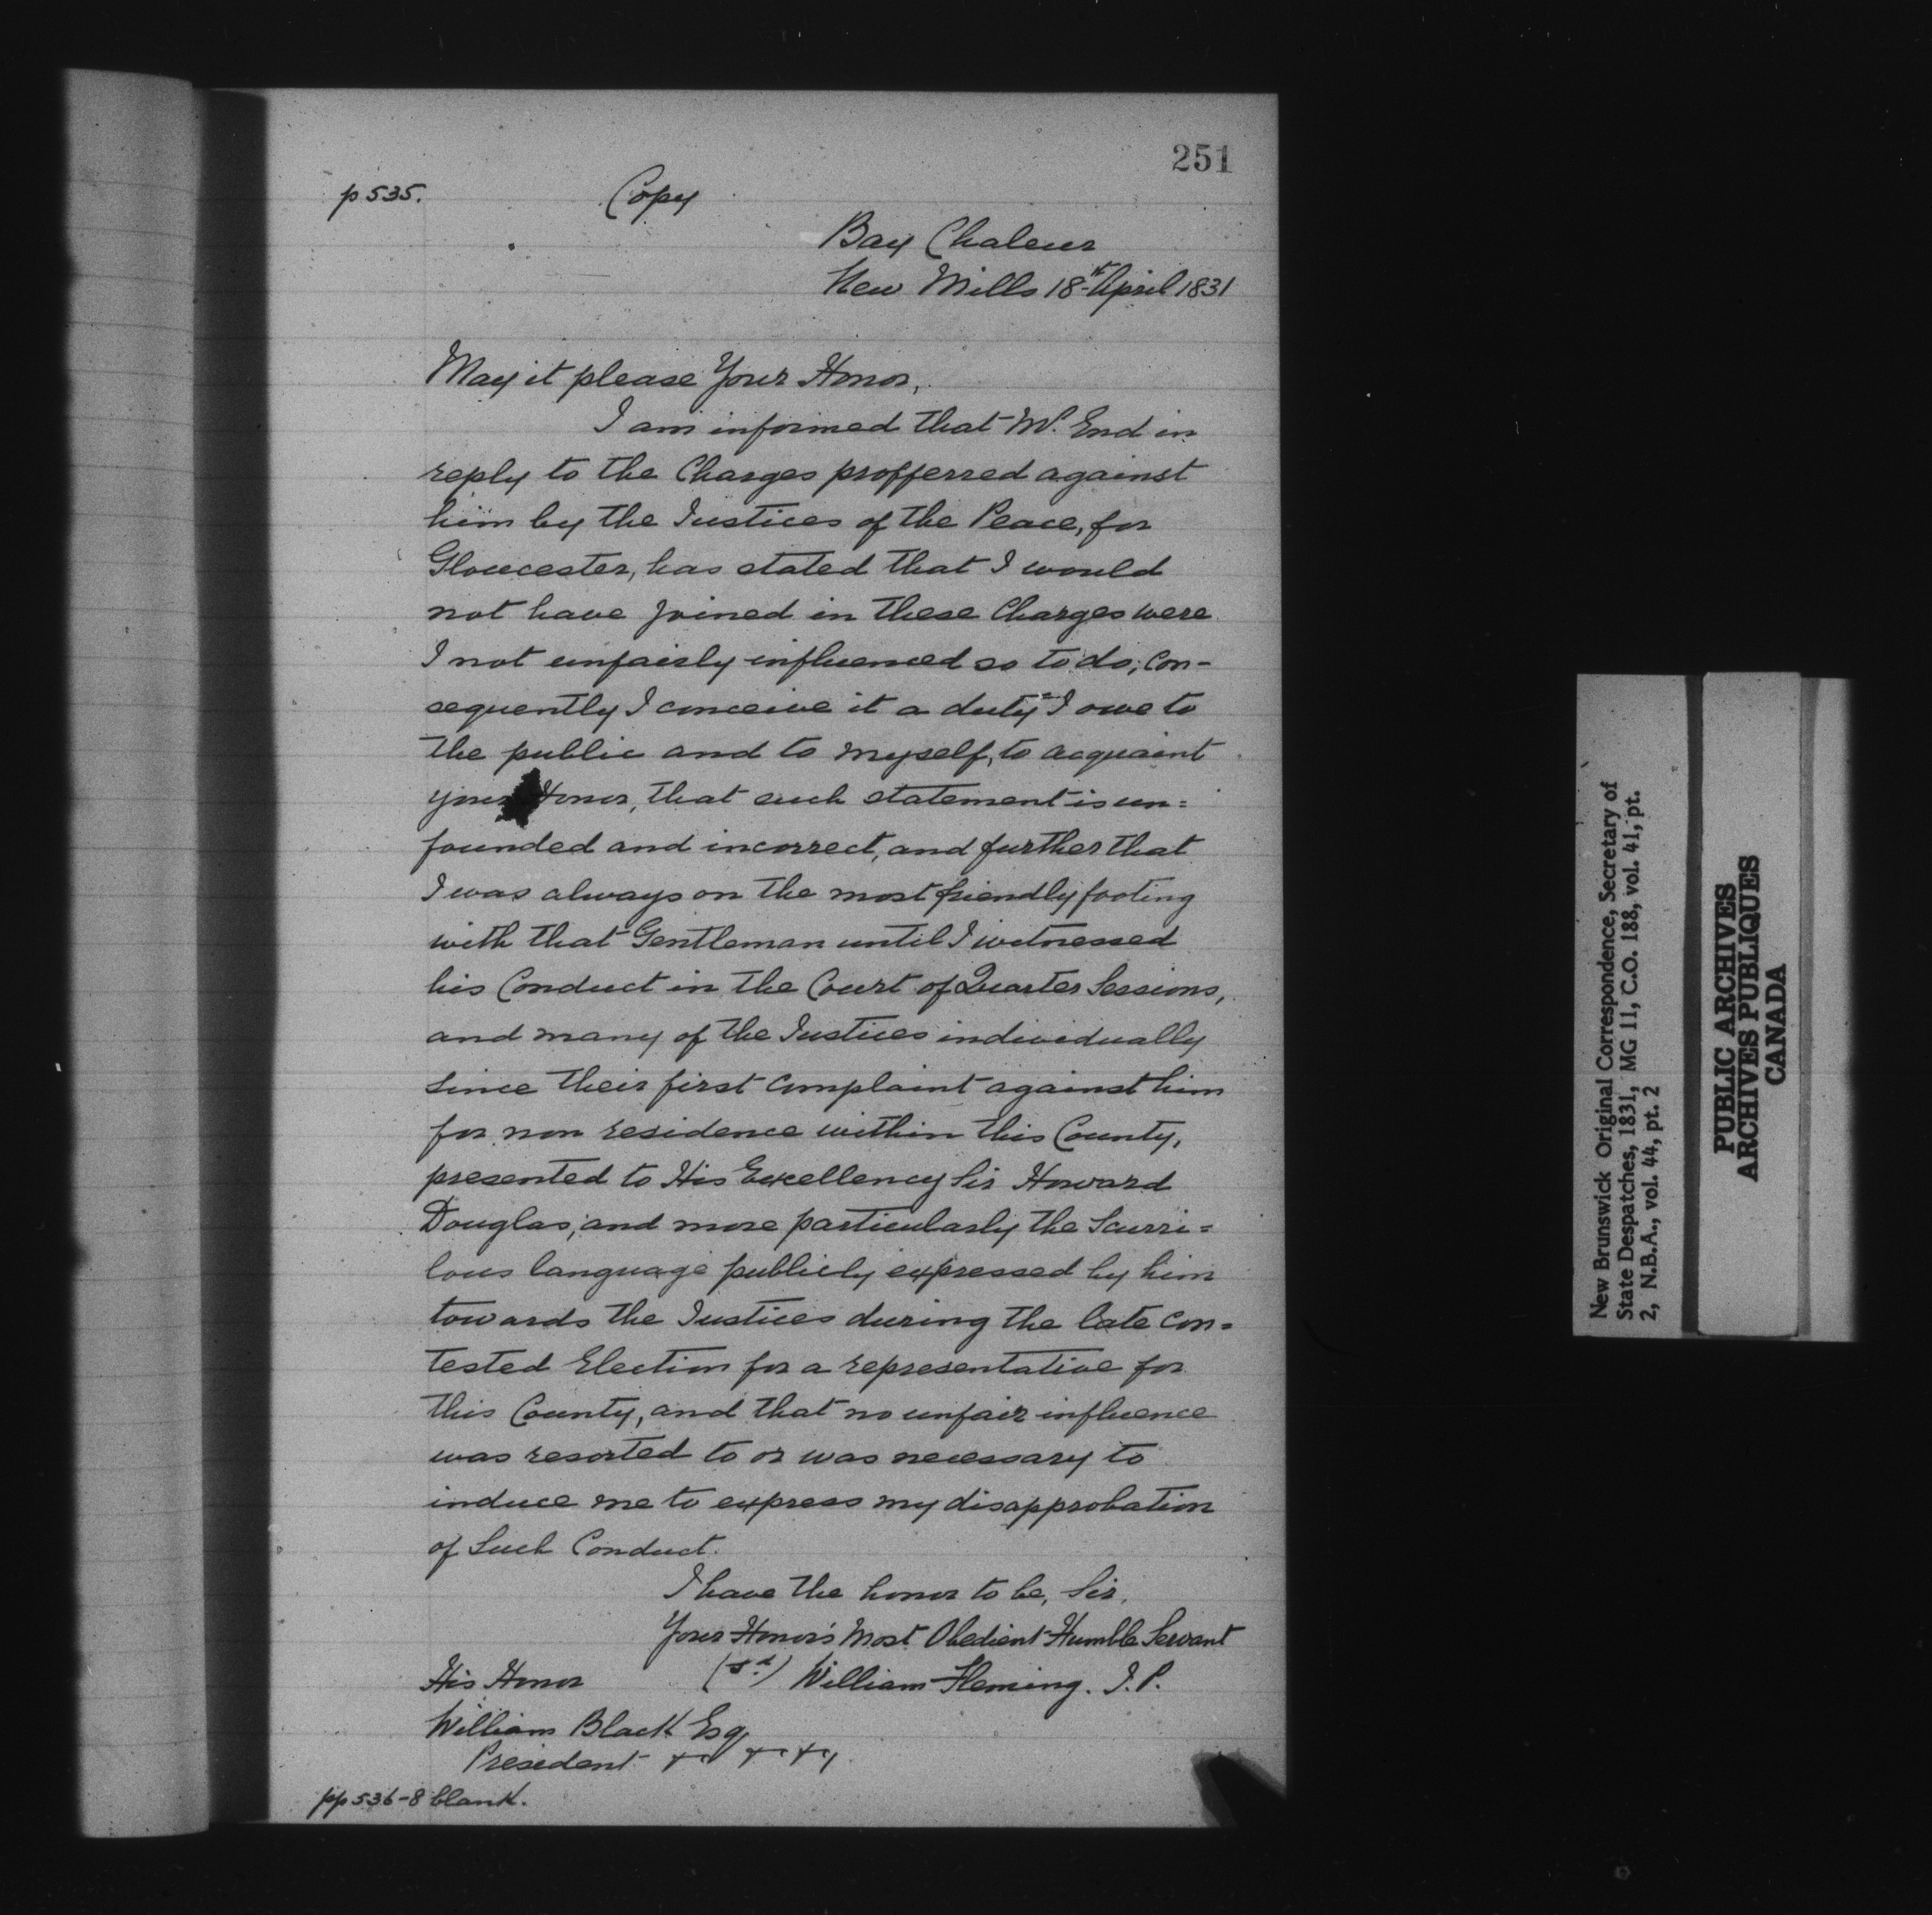 251
p 535.
Copy
Bay Chaleur
New Mills 18th April 1831
May it please Your Honor,
I am informed that Mr. End in
reply to the Charges profferred against
him by the Justices of the Peace, for
Gloucester, has stated that I would
not have joined in these Charges were
I not unfairly influenced so to do; con-
sequently I conceive it a duty I owe to
the public and to myself, to acquaint
your Honor, that such statement is un=
founded and incorrect, and further that
I was always on the most friendly footing
with that Gentleman until I witnessed
his Conduct in the Court of Quarter Sessions,
and many of the Justices individually
since their first complaint against him
for non residence within this County,
presented to His Excellency Sir Howard
Douglas; and more particularly the Scurri=
lous language publicly expressed by him
towards the Justices during the late Con=
tested Election for a representative for
this County, and that no unfair influence
was resorted to or was necessary to
induce me to express my disapprobation
of Such Conduct.
I have the honor to be, Sir,
Your Honor's Most Obedient Humble Servant
(sd.) William Fleming. J.P.
His Honor
William Black Esq
President
pp 536-8 blank.
New Brunswick Original Correspondence, Secretary of
State Despatches, 1831, MG 11, C.O. 188, vol. 41, pt.
2, N.B.A., vol. 44, pt. 2
PUBLIC ARCHIVES
ARCHIVES PUBLIQUES
CANADA